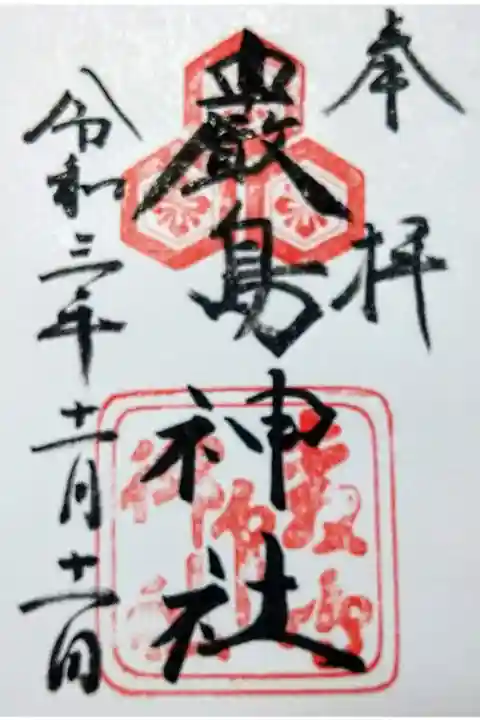 奉拝
厳島神社
令和三年十一月十一日